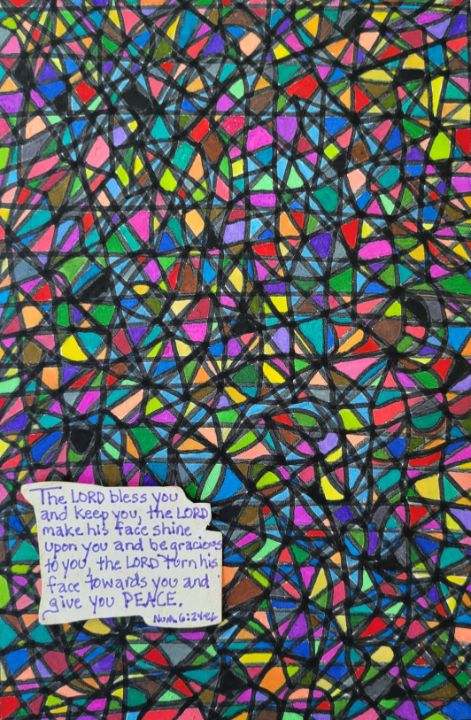 The LORD bless you
and keep you, the LORD
make his face shine
upon you and be gracious
to you, the LORD turn his
face towards you and
give you PEACE.
Num. 6:24-26